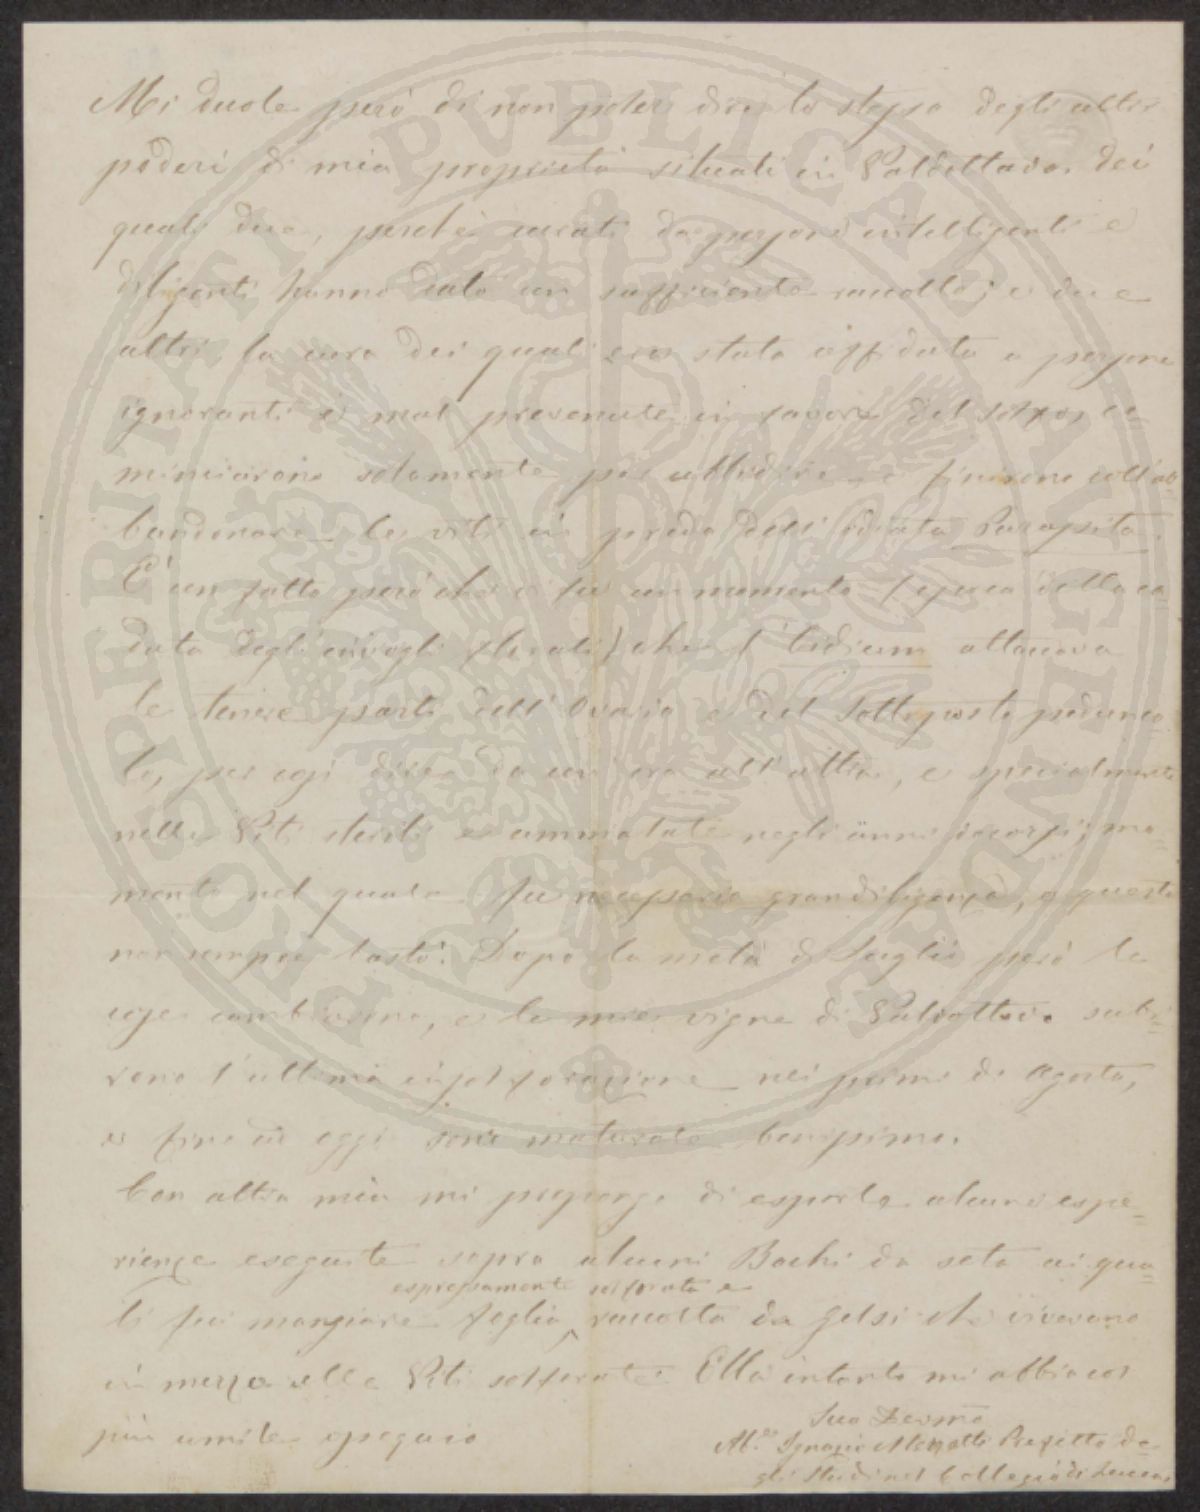 Mi duole però di non poter dire lo stesso degli altri
poderi di mia proprietà situati in Valdottavo. Dei
quali due, perchè curati da persone intelligenti e
diligenti hanno dato un sufficiente raccolto; e due
altri, la cura dei quali era stata affidata a persone
ignoranti e mal prevenute in favore del solfo, co=
minciarono solamente per ubbidire e finirono coll'ab=
bandonare le viti in preda dell'odiata Parassita.
È un fatto però che vi fu un momento (epoca della ca=
duta degl'invogli florali) che l'Oidium attaccava
le tenere parti dell'Ovario e del sottoposto peduncо=
lo, per cosi dire da un'ora all'altra, e specialmente
nelle Viti sterili e ammalate negli anni scorsi; mo=
mento nel quale fu necessaria gran diligenza, e questa
non sempre bastò. Dopo la metà di Luglio però le
cose cambiarono, e le mie vigne di Valdottavo subi=
rono l'ultima insolforazione nei primi di Agosto,
e fino ad oggi sono maturate benissimo.
Con altra mia mi propongo di esporle alcune espe=
rienze eseguite sopra alcuni Bachi da seta ai qua=
espressamente solforata e
li feci mangiare foglia raccolta da gelsi che vivevano
in mezzo alle Viti solforate. Ella intanto mi abbia col
più umile ossequio
Suo Devmo
Ab. Ignazio Prefetto de=
gli Studi nel Collegio di Lucca